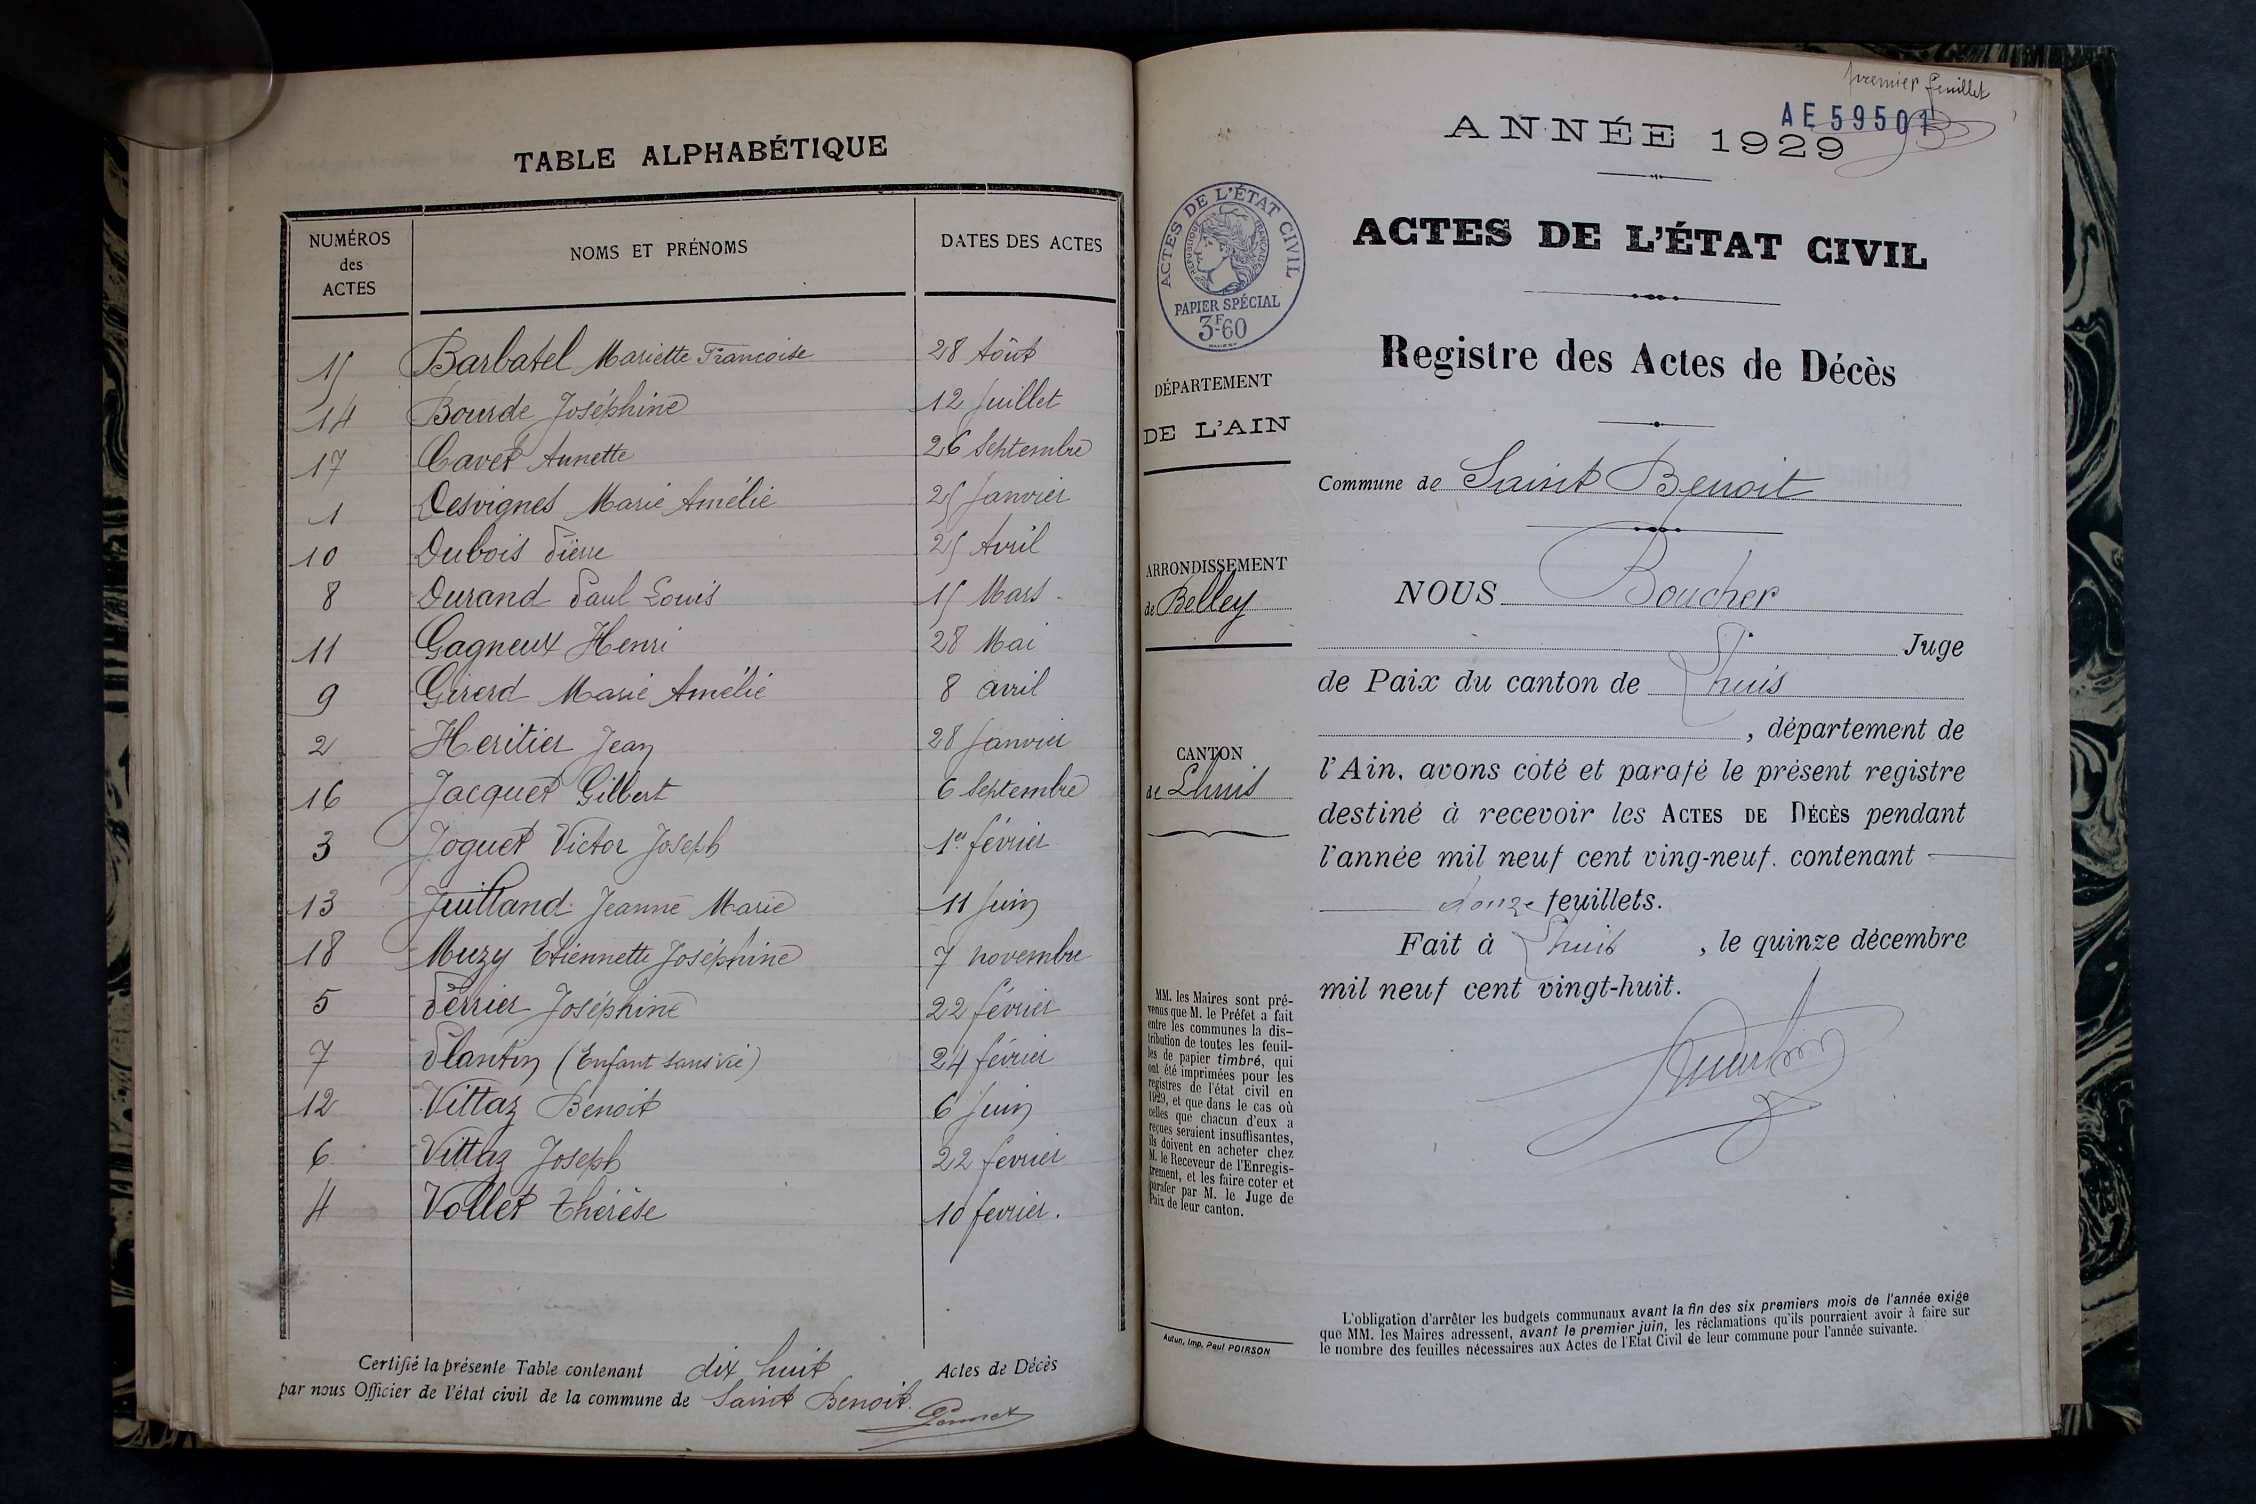 TABLE ALPHABÉTIQUE
NUMÉROS des ACTES NOMS ET PRÉNOMS DATES DES ACTES
15 Barbatel Mariette Francoise 28 Aôut
14 Bourde Joséphine 12 Juillet
17 Cavet Annette 26 Septembre
1 Desvignes Marie Amélie 25 Janvier
10 Dubois Pierre 25 Avril
8 Durand Paul Louis 15 Mars
11 Gagneux Henri 28 Mai
9 Girerd Marie Amélie 8 avril
2 Heritier Jean 28 Janvier
16 Jacquet Gilbert 6 Septembre
3 Joguet Victor Joseph 1er février
13 Juilland Jeanne Marie 11 Juin
18 Muzy Etiennette Joséphine 7 novembre
5 Perrier Joséphine 22 février
7 Plantin (Enfant sans vie) 24 février
12 Vittaz Benoit 6 Juin
6 Vittaz Joseph 22 fevrier
4 Vollet Thérèse 10 fevrier.
Certifié la présente Table contenant dix huit Actes de Décès
par nous Officier de l'état civil de la commune de Saint Benoit.
premier feuillet
AE 59501
ANNÉE 1929
ACTES DE L'ÉTAT CIVIL
RÉPUBLIQUE FRANÇAISE
PAPIER SPÉCIAL
3F60
ACTES DE L'ÉTAT CIVIL
Registre des Actes de Décès
DÉPARTEMENT
DE L'AIN
ARRONDISSEMENT
de Belley
CANTON
de Lhuis
MM. les Maires sont pré-
venus que M. le Préfet a fait
entre les communes la dis-
tribution de toutes les feuil-
les de papier timbré, qui
ont été imprimées pour les
registres de l'état civil en
1929, et que dans le cas où
celles que chacun d'eux a
reçues seraient insuffisantes,
ils doivent en acheter chez
M. le Receveur de l'Enregis-
trement, et les faire coter et
parafer par M. le Juge de
Paix de leur canton.
Autun, Imp. Paul POIRSON
Commune de Saint Benoit
NOUS Boucher
Juge
de Paix du canton de Lhuis
, département de
l'Ain, avons coté et parafé le présent registre
destiné à recevoir les ACTES DE DÉCÈS pendant
l'année mil neuf cent ving-neuf. contenant
douze feuillets.
Fait à Lhuis , le quinze décembre
mil neuf cent vingt-huit.
L'obligation d'arrêter les budgets communaux avant la fin des six premiers mois de l'année exige
que MM. les Maires adressent, avant le premier juin, les réclamations qu'ils pourraient avoir à faire sur
le nombre des feuilles nécessaires aux Actes de l'Etat Civil de leur commune pour l'année suivante.